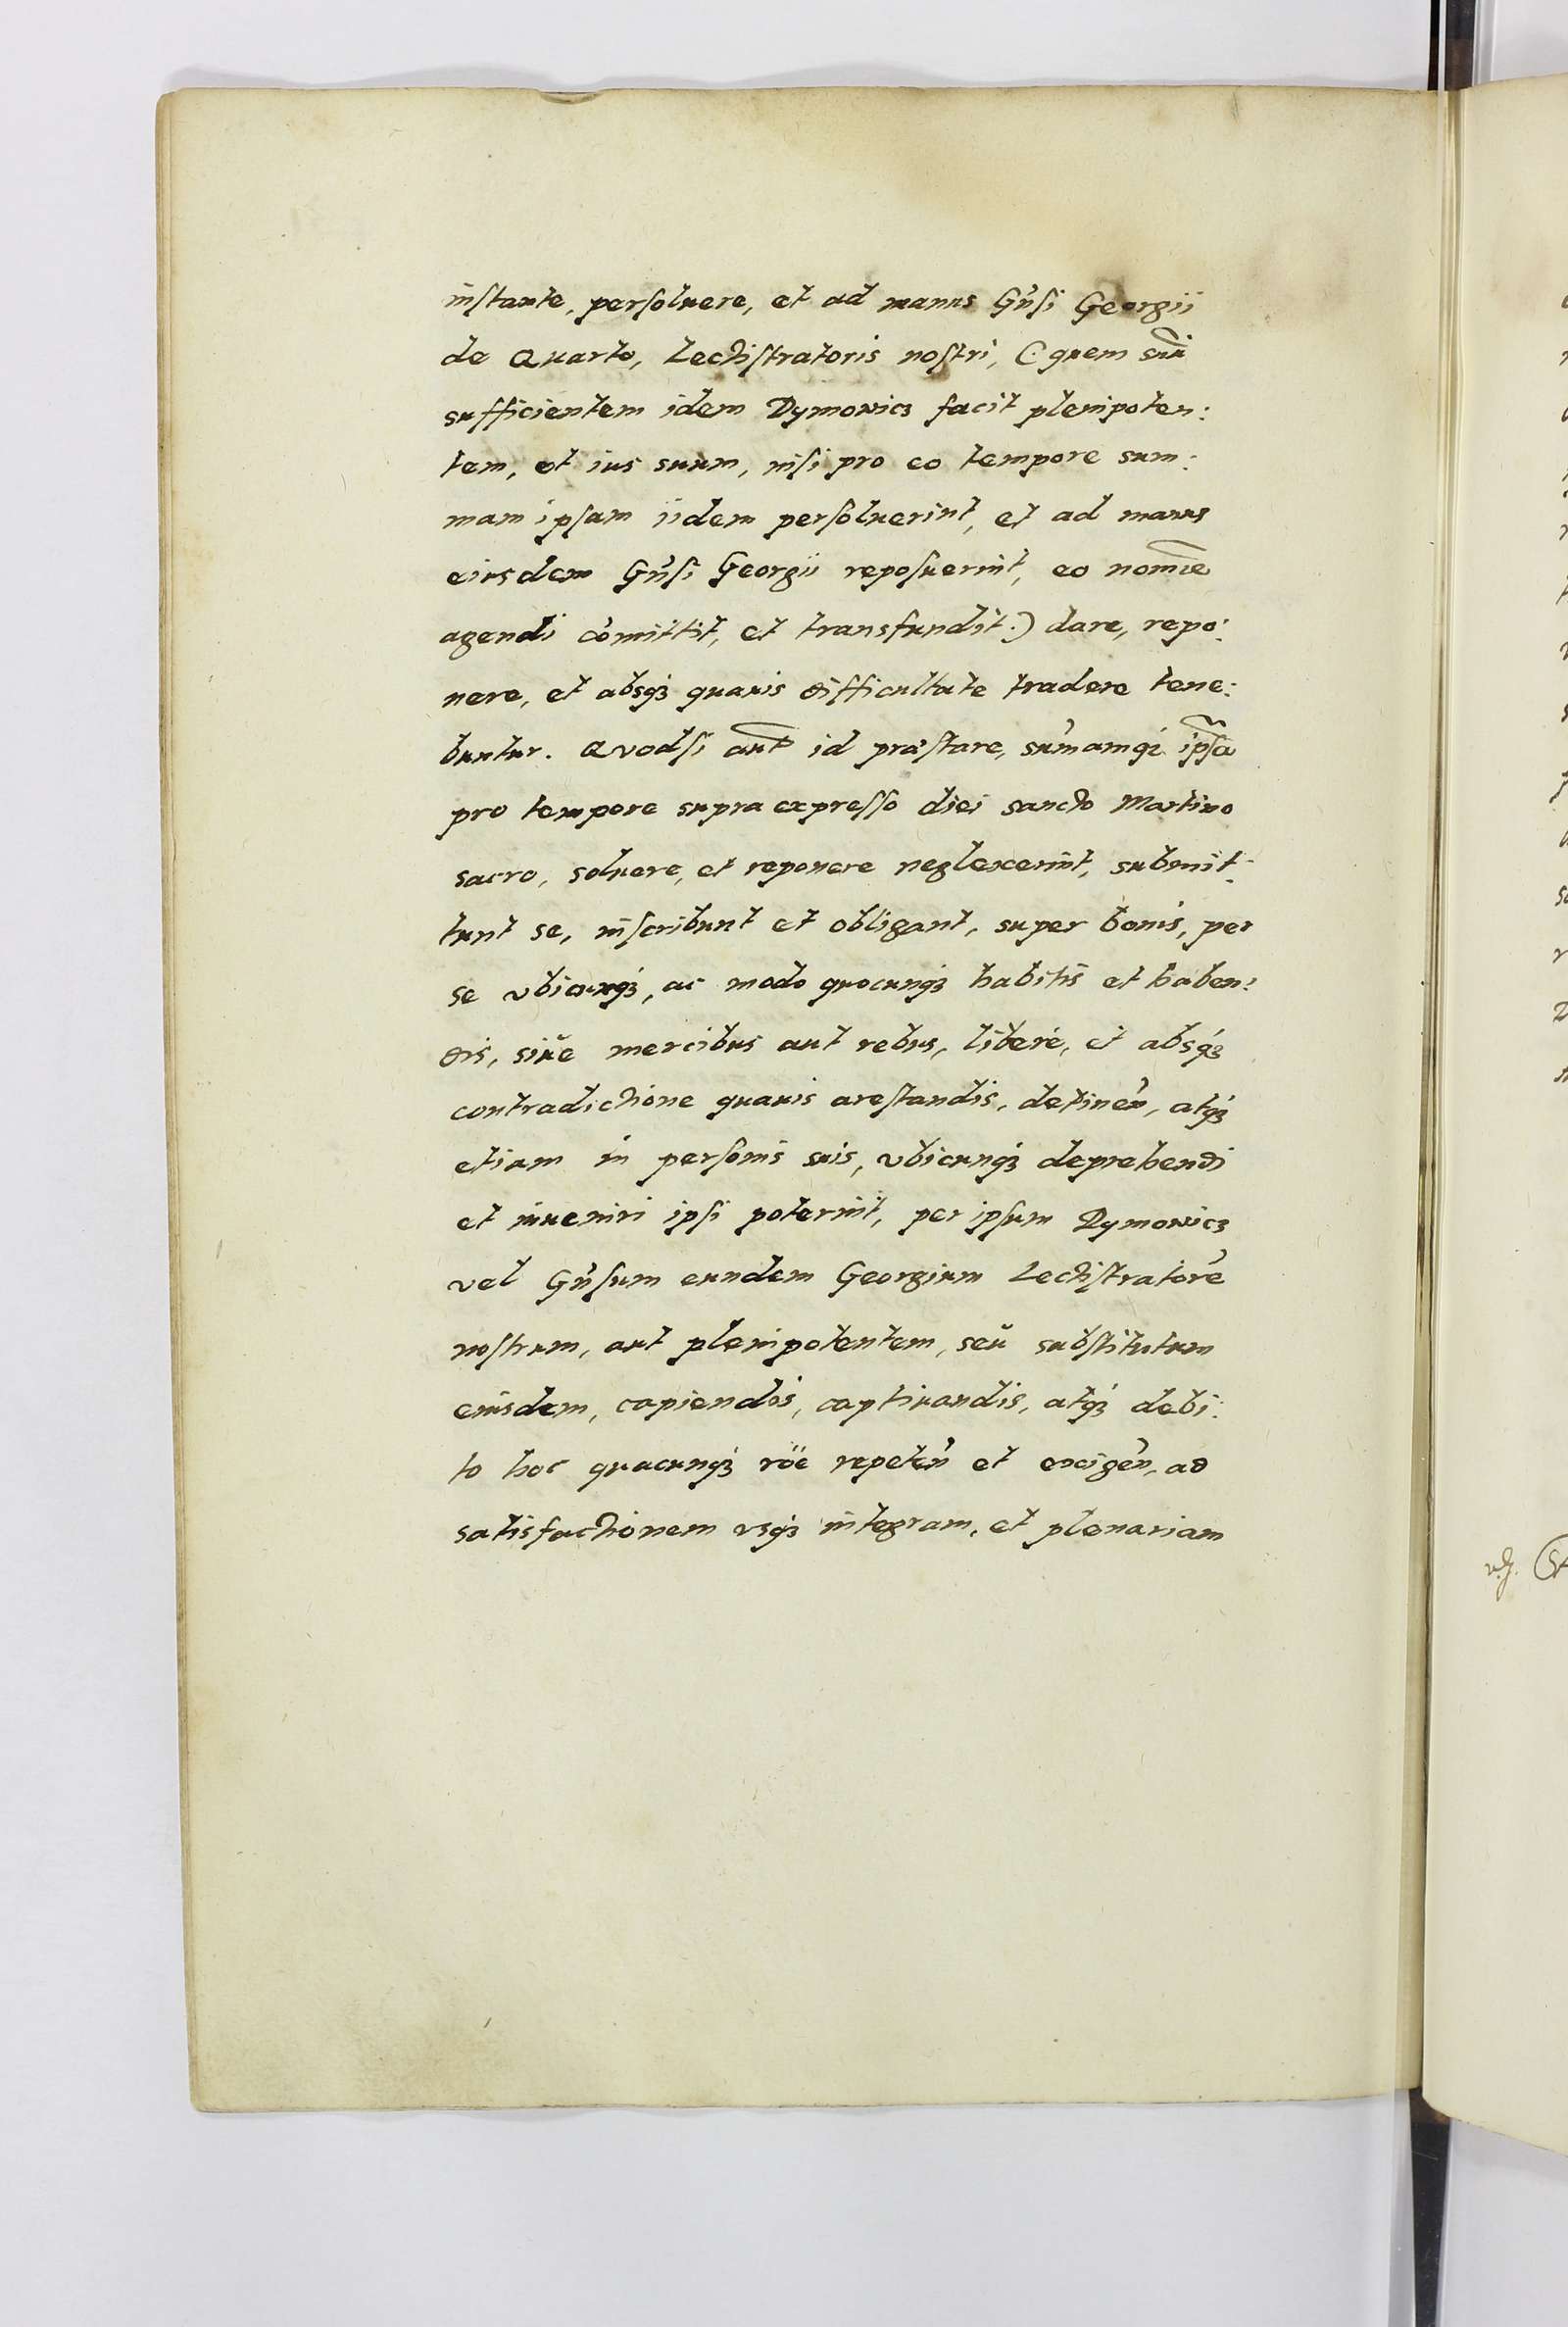 inſtante, perſoluere, et ad manus Gn̄ſi Georgii
de Quarto, Lectiſtratoris noſtri, (: quem suū
sufficientem idem Dymowicz facit plenipoten:
tem, et ius suum, niſi pro eo tempore sum:
mam ipſam iidem perſoluerint, et ad manus
eiusdem Gn̄ſi Georgii repoſuerint, eo nomīe
agendi cōmittit, et transfundit :) dare, repo:
nere, et absqꝫ quauis difficultate tradere tene:
buntur. Quodſi aut̄ id præſtare, sum̄amqꝫ ipſā
pro tempore supra expreſſo diei sancto Martino
sacro, soluere, et reponere neglexerint, submit:
tunt se, inſcribunt et obligant, super bonis, per
se vbicunqꝫ, ac modo quocunqꝫ habitis et haben:
dis, siue mercibus aut rebus, liberè, et absqꝫ
contradictione quauis areſtandis, detinen̄, atqꝫ
etiam in perſonis suis, vbicunqꝫ deprehendi
et inueniri ipſi poterint, per ipſum Dymowicz
vel Gn̄ſum eundem Georgium Lectiſtratorē
noſtrum, aut plenipotentem, seu subſtitutum
eiusdem, capiendis, captiuandis, atqꝫ debi:
to hoc quacunqꝫ rōe repeten̄ et exigen̄, ad
satisfactionem vsqꝫ integram, et plenariam